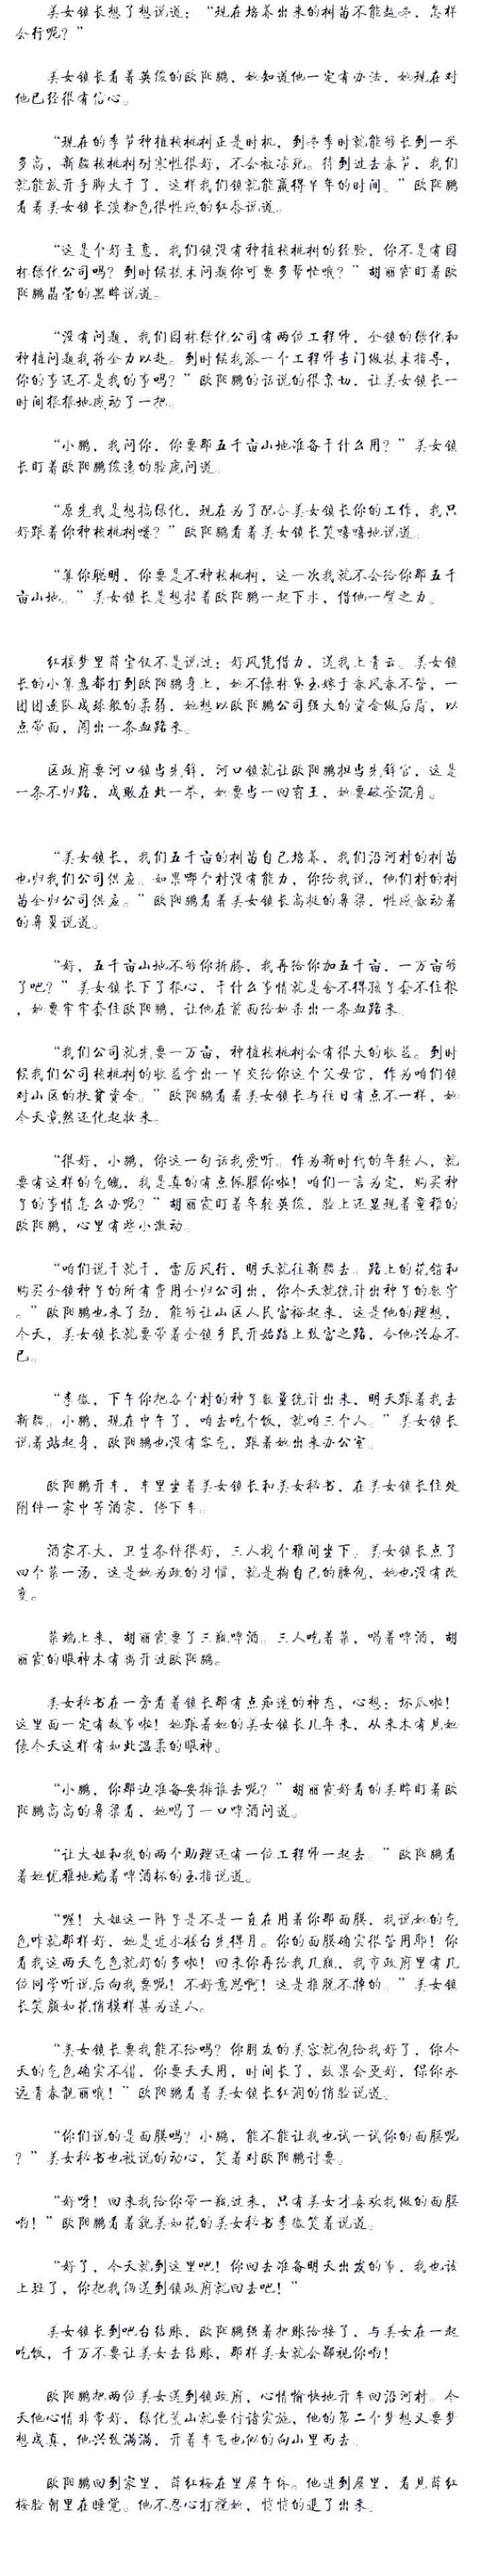 美女镇长想了想说道：“现在培养出来的树苗不能越冬、怎样
会行呢？”
美女镇长看着英俊的欧阳鹏，她知道他一定有办法，她现在对
他已经很有信心。
“现在的季节种植核桃树正是时机，到冬季时就能够长到一米
多高，新疆核桃树耐寒性很好，不会被冻死。待到过去春节，我们
就能放开手脚大干了，这样我们镇就能赢得半年的时间。”欧阳鹏
看着美女镇长淡粉色很性感的红唇说道。
“这是个好主意，我们镇没有种植核桃树的经验，你不是有园
林绿化公司吗？到时候技术问题你可要多帮忙哦？”胡丽霞盯着欧
阳鹏晶莹的黑眸说道。
“没有问题，我们园林绿化公司有两位工程师，全镇的绿化和
种植问题我将全力以赴。到时候我派一个工程师专门做技术指导，
你的事还不是我的事吗？”欧阳鹏的话说的很亲切，让美女镇长一
时间狠狠地感动了一把。
“小鹏，我问你，你要那五千亩山地准备干什么用？”美女镇
长盯着欧阳鹏俊逸的脸庞问道。
“原先我是想搞绿化，现在为了配合美女镇长你的工作，我只
好跟着你种核桃树喽？”欧阳鹏看着美女镇长笑嘻嘻地说道。
“算你聪明，你要是不种核桃树，这一次我就不会给你那五千
亩山地。”美女镇长是想拉着欧阳鹏一起下水，借他一臂之力。
红楼梦里薛宝钗不是说过：好风凭借力，送我上青云。美女镇
长的小算盘都打到欧阳鹏身上，她不像林黛玉嫁于春风春不管，一
团团逐队成球般的柔弱，她想以欧阳鹏公司强大的资金做后盾，以
点带面，闯出一条血路来。
区政府要河口镇当先锋，河口镇就让欧阳鹏担当先锋官，这是
一条不归路，成败在此一举，她要当一回霸王，她要破釜沉舟。
“美女镇长，我们五千亩的树苗自己培养，我们沿河村的树苗
也归我们公司供应。如果哪个村没有能力，你给我说，他们村的树
苗全归公司供应。”欧阳鹏看着美女镇长高挺的鼻梁，性感歙动着
的鼻翼说道。
“好，五千亩山地不够你折腾，我再给你加五千亩，一万亩够
了吧？”美女镇长下了狠心，干什么事情就是舍不得孩子套不住狼
，她要牢牢套住欧阳鹏，让他在前面给她杀出一条血路来。
“我们公司就先要一万亩，种植核桃树会有很大的收益。到时
候我们公司核桃树的收益拿出一半交给你这个父母官，作为咱们镇
对山区的扶贫资金。”欧阳鹏看着美女镇长与往日有点不一样，她
今天竟然还化起妆来。
“很好，小鹏，你这一句话我爱听。作为新时代的年轻人，就
要有这样的气魄，我是真的有点佩服你啦！咱们一言为定，购买种
子的事情怎么办呢？”胡丽霞盯着年轻英俊，脸上还显现着童稚的
欧阳鹏，心里有些小激动。
“咱们说干就干，雷厉风行，明天就往新疆去。路上的花销和
购买全镇种子的所有费用全归公司出，你今天就统计出种子的数字
。”欧阳鹏也来了劲，能够让山区人民富裕起来，这是他的理想，
今天，美女镇长就要带着全镇乡民开始踏上致富之路，令他兴奋不
已。
“李傲，下午你把各个村的种子数量统计出来，明天跟着我去
新疆。小鹏，现在中午了，咱去吃个饭，就咱三个人。”美女镇长
说着站起身，欧阳鹏也没有客气，跟着她出来办公室。
欧阳鹏开车，车里坐着美女镇长和美女秘书，在美女镇长住处
附件一家中等酒家，停下车。
酒家不大，卫生条件很好，三人找个雅间坐下。美女镇长点了
四个菜一汤，这是她为政的习惯，就是掏自己的腰包，她也没有改
变。
菜端上来，胡丽霞要了三瓶啤酒。三人吃着菜，喝着啤酒，胡
丽霞的眼神未有离开过欧阳鹏。
美女秘书在一旁看着镇长那有点痴迷的神态，心想：坏瓜啦！
这里面一定有故事啦！她跟着她的美女镇长几年来，从来未有见她
像今天这样有如此温柔的眼神。
“小鹏，你那边准备安排谁去呢？”胡丽霞好看的美眸盯着欧
阳鹏高高的鼻梁看，她喝了一口啤酒问道。
“让大姐和我的两个助理还有一位工程师一起去。”欧阳鹏看
着她优雅地端着啤酒杯的玉指说道。
“喔！大姐这一阵子是不是一直在用着你那面膜，我说她的气
色咋就那样好，她是近水楼台先得月。你的面膜确实很管用耶！你
看我这两天气色就好的多啦！回来你再给我几瓶，我市政府里有几
位同学听说后向我要呢！不好意思啊！这是推脱不掉的。”美女镇
长笑颜如花俏模样甚为迷人。
“美女镇长要我能不给吗？你朋友的美容就包给我好了，你今
天的气色确实不错，你要天天用，时间长了，效果会更好，保你永
远青春靓丽哦！”欧阳鹏看着美女镇长红润的俏脸说道。
“你们说的是面膜吗？小鹏，能不能让我也试一试你的面膜呢
？”美女秘书也被说的动心，笑着对欧阳鹏讨要。
“好呀！回来我给你带一瓶过来，只有美女才喜欢我做的面膜
哟！”欧阳鹏看着貌美如花的美女秘书李傲笑着说道。
“好了，今天就到这里吧！你回去准备明天出发的事，我也该
上班了，你把我俩送到镇政府就回去吧！”
美女镇长到吧台结账，欧阳鹏强着把账给接了，与美女在一起
吃饭，千万不要让美女去结账，那样美女就会鄙视你哟！
欧阳鹏把两位美女送到镇政府，心情愉快地开车回沿河村。今
天他心情非常好，绿化荒山就要付诸实施，他的第二个梦想又要梦
想成真，他兴致满满，开着车飞也似的向山里而去。
欧阳鹏回到家里，薛红梅在里屋午休。他进到屋里，看见薛红
梅脸朝里在睡觉。他不忍心打搅她，悄悄的退了出来。